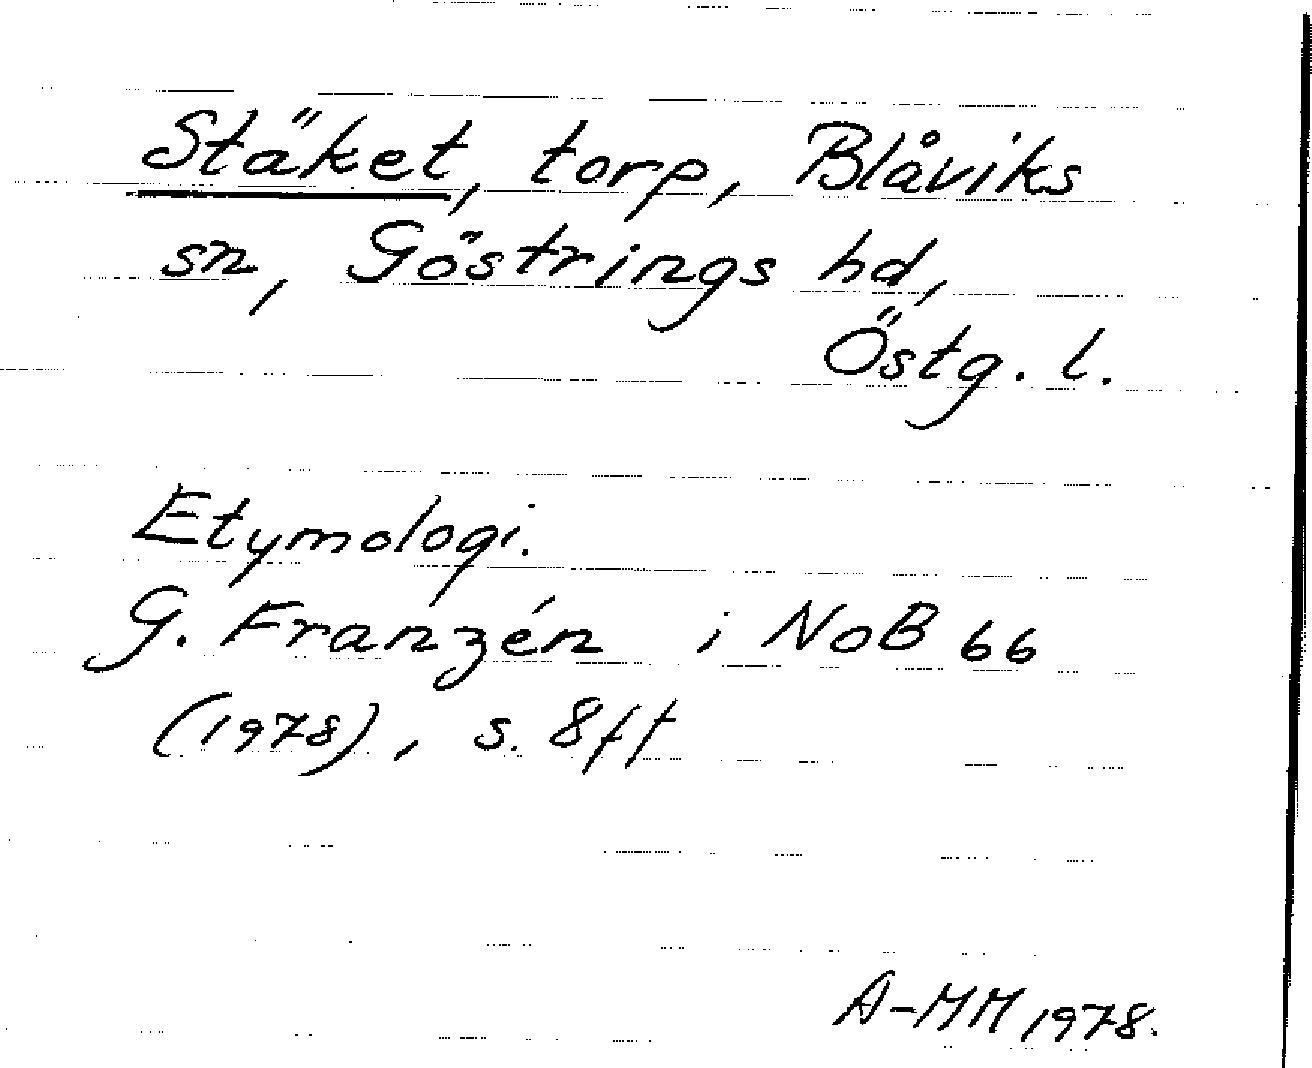 Stäket, torp, Blåviks
sn, Göstrings hd,
Östg. l.
Etymologi.
G. Franzén i NoB 66
(1978), s. 8ff
A-MM 1978.